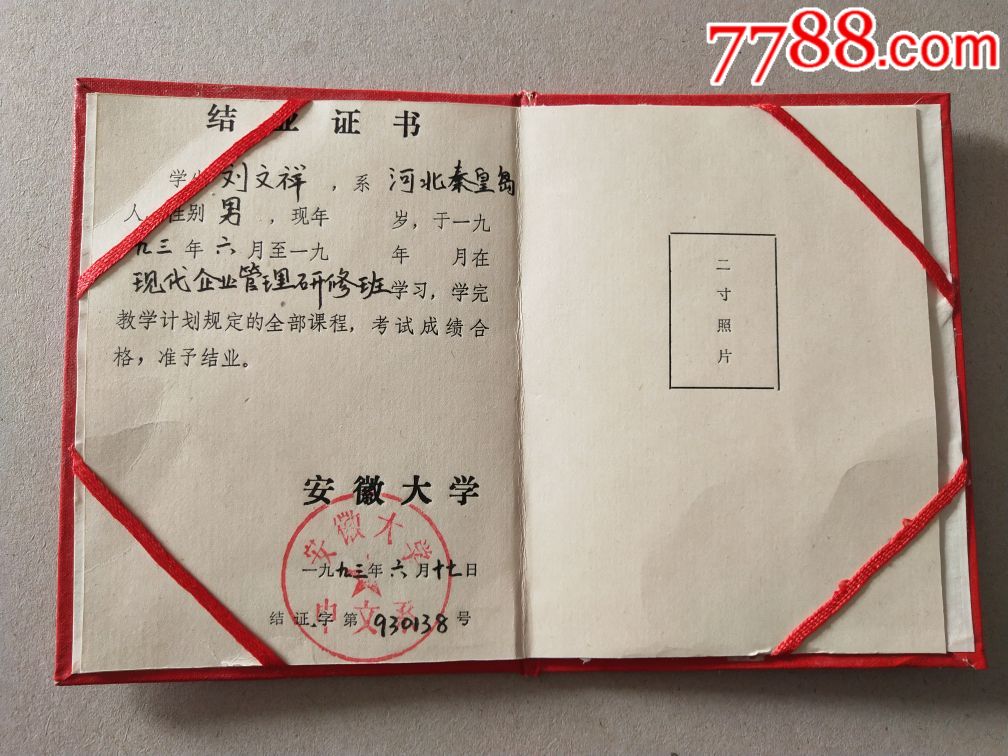 7788.com
结业证书
学生刘文祥,系 河北秦皇岛
人,性别 男 ,现年 岁,于一九
九三年六月至一九 年 月在
现代企业管理研修班学习,学完
教学计划规定的全部课程,考试成绩合
格,准予结业。
安徽大学
安徽大学
一九九三年六月十七日
中文系
结证字第930138号
二寸照片